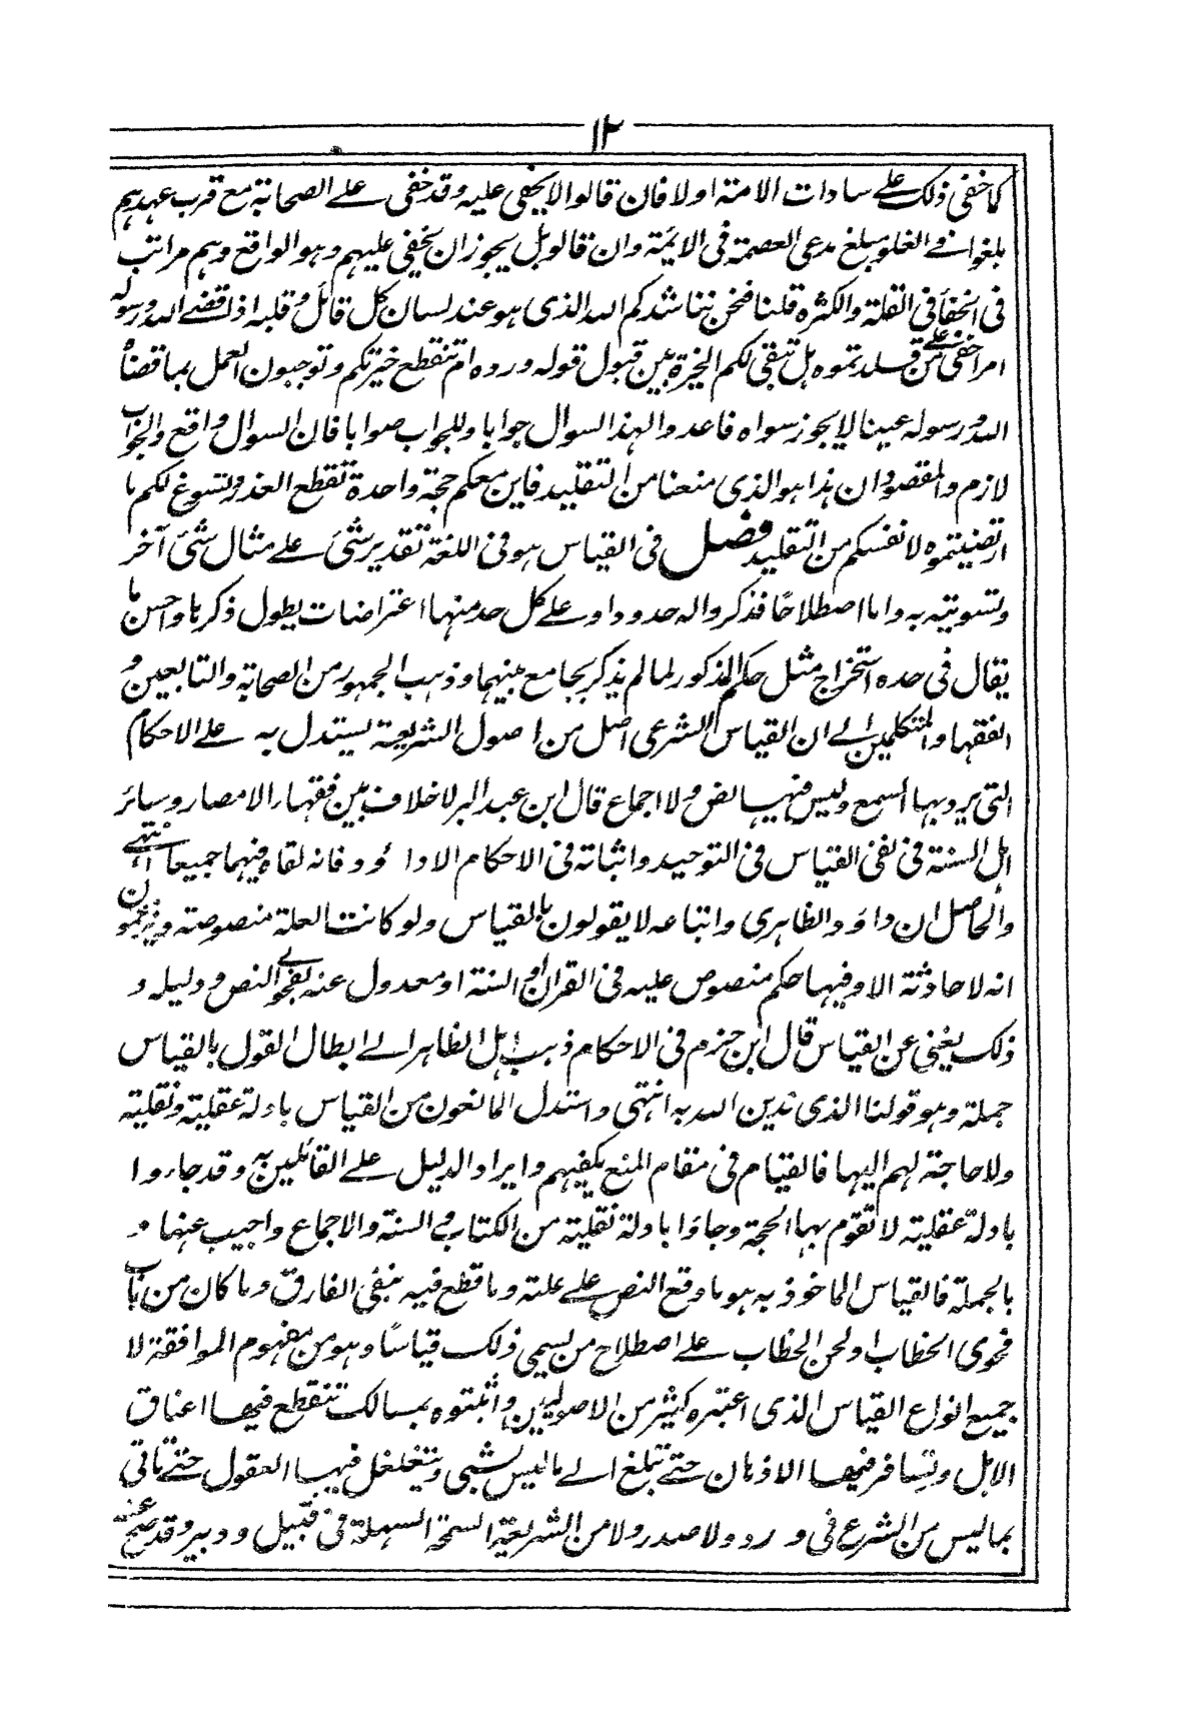 ١٢
كما خفى ذلك على سادات الامة اولا فان قالوا لا يخفى عليه وقد خفى على الصحابة مع قرب عهدهم
بلغوا فى الغلو مبلغ مدعى العصمة فى الائمة وان قالوا بل يجوز ان يخفى عليهم وهو الواقع وهم مراتب
فى الخفأ فى القلة والكثره قلنا فنحن نناشدكم الله الذى هو عند لسان كل قائل وقلبه اذا قضى الله ورسوله
امرا خفى على من قلدتموه هل تبقى لكم الخيرة بين قبول قوله ورده ام تنقطع خيرتكم وتوجبون العمل بما قضاه
الله ورسوله عينا لا يجوز سواه فاعدوا لهذا السوال جوابا وللجواب صوابا فان السوال واقع والجواب
لازم والمقصود ان هذا هو الذى منعنا من التقليد فاين معكم حجة واحدة تقطع العذر وتسوغ لكم ما
ارتضيتموه لانفسكم من التقليد فصل فى القياس هو فى اللغة تقدير شئ على مثال شئ آخر
وتسويته به واما اصطلاحا فذكروا له حدودا وعلى كل حد منها اعتراضات يطول ذكرها واحسن ما
يقال فى حده استخراج مثل حكم المذكور لما لم يذكر بجامع بينهما وذهب الجمهور من الصحابة والتابعين و
الفقها والمتكلمين الى ان القياس الشرعى اصل من اصول الشريعة يستدل به على الاحكام
التى يرد بها السمع وليس فيها نص ولا اجماع قال ابن عبد البر لا خلاف بين فقهاء الامصار وسائر
اهل السنة فى نفى القياس فى التوحيد واثباته فى الاحكام الا داؤود فانه نفاه فيهما جميعا انتهى
والحاصل ان داؤد والظاهرى واتباعه لا يقولون بالقياس ولو كانت العلة منصوصة ويزعمون
انه لا حادثة الا وفيها حكم منصوص عليه فى القران او السنة او معدول عنه بفحوى النص ودليله و
ذلك يغنى عن القياس قال ابن حزم فى الاحكام ذهب اهل الظاهر الى ابطال القول بالقياس
جملة وهو قولنا الذى ندين الله به انتهى واستدل المانعون من القياس بادلة عقلية ونقلية
ولا حاجة لهم اليها فالقيام فى مقام المنع يكفيهم وايراد الدليل على القائلين به وقد جاءوا
بادلة عقلية لا تقوم بها الحجة وجاؤا بادلة نقلية من الكتاب والسنة والاجماع واجيب عنها و
بالجملة فالقياس الماخوذ به هو ما وقع النص على علته وما قطع فيه بنفى الفارق وما كان من باب
فحوى الخطاب او لحن الخطاب على اصطلاح من يسمى ذلك قياسًا وهو من مفهوم الموافقة لا
جميع انواع القياس الذى اعتبره كثير من الاصوليين واثبتوه بمسالك تنقطع فيها اعناق
الابل وتسافر فيها الاذهان حتى تبلغ الى ما ليس بشئ وتتغلغل فيها العقول حتى تاتى
بما ليس من الشرع فى ورد ولا صدر ولا من الشريعة السمحة السهلة فى قبيل و دبير وقد صح عنه